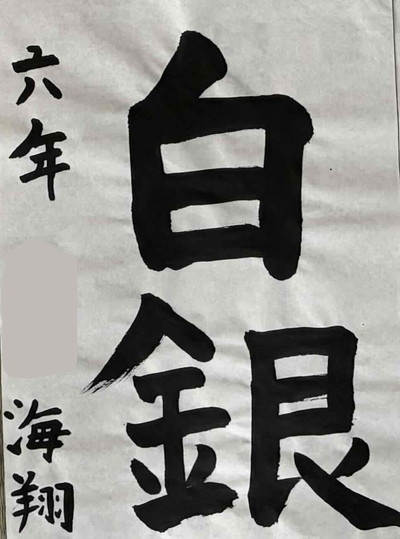 白銀
六年
海翔